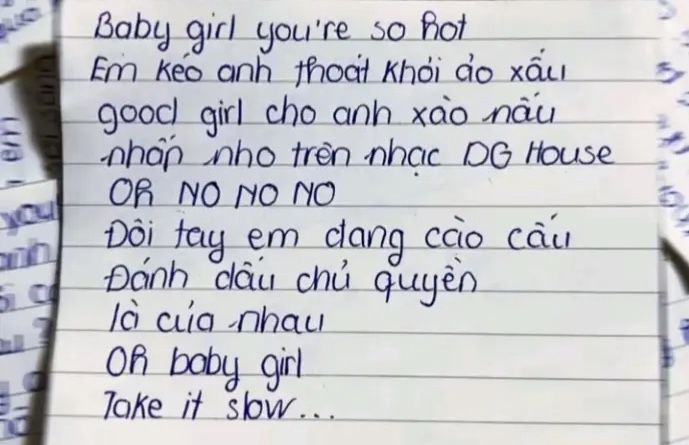 Baby girl you're so hot
Em kéo anh thoát khỏi áo xấu
good girl cho anh xào nấu
nhấp nho trên nhạc DG House
Oh NO NO NO
Đôi tay em đang cào cấu
Đánh dấu chủ quyền
là của nhau
Oh baby girl
Take it slow...